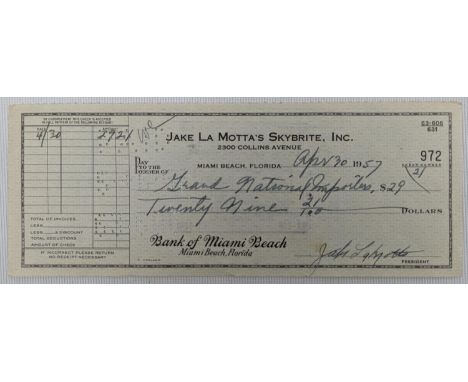 4/30 29 21
JAKE LA MOTTA'S SKYBRITE, INC.
2300 COLLINS AVENUE
63-606
631
MIAMI BEACH, FLORIDA Apr 30 1957
972
PAY TO THE ORDER OF Grand National Importers, $29 21/
Twenty Nine 21/100 DOLLARS
TOTAL OF INVOICES
LESS
LESS % DISCOUNT
TOTAL DEDUCTIONS
AMOUNT OF CHECK
IF INCORRECT PLEASE RETURN
NO RECEIPT NECESSARY
Bank of Miami Beach
Miami Beach, Florida
Jake LaMotta
PRESIDENT